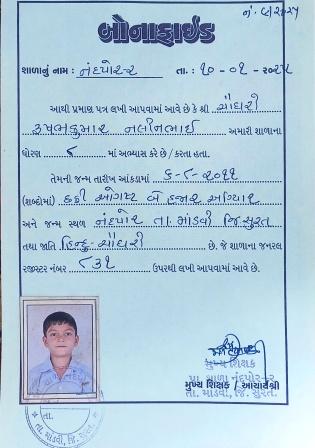 નં. ૯/૨૦૨૫
બોનાફાઈડ
શાળાનું નામ : નંદપોર-૨ તા. : ૧૦-૦૧-૨૦૨૫
આથી પ્રમાણ પત્ર લખી આપવામાં આવે છે કે શ્રી ચૌધરી
રૂષભકુમાર નલીનભાઈ અમારી શાળાના
ધોરણ ૮ માં અભ્યાસ કરે છે / કરતા હતા.
તેમની જન્મ તારીખ આંકડામાં ૬-૮-૨૦૧૧
(શબ્દોમાં) છઠ્ઠી ઓગષ્ટ બે હજાર અગિયાર
અને જન્મ સ્થળ નંદપોર તા. માંડવી જિ. સુરત
તથા જાતિ હિન્દુ-ચૌધરી છે. જે શાળાના જનરલ
રજીસ્ટર નંબર ૮૩૧ ઉપરથી લખી આપવામાં આવે છે.
મુખ્ય શિક્ષક
પ્રા. શાળા નંદપોર-૨
મુખ્ય શિક્ષક / આચાર્યશ્રી
તા. માંડવી, જિ. સુરત.
તા. માંડવી, જિ. સુરત